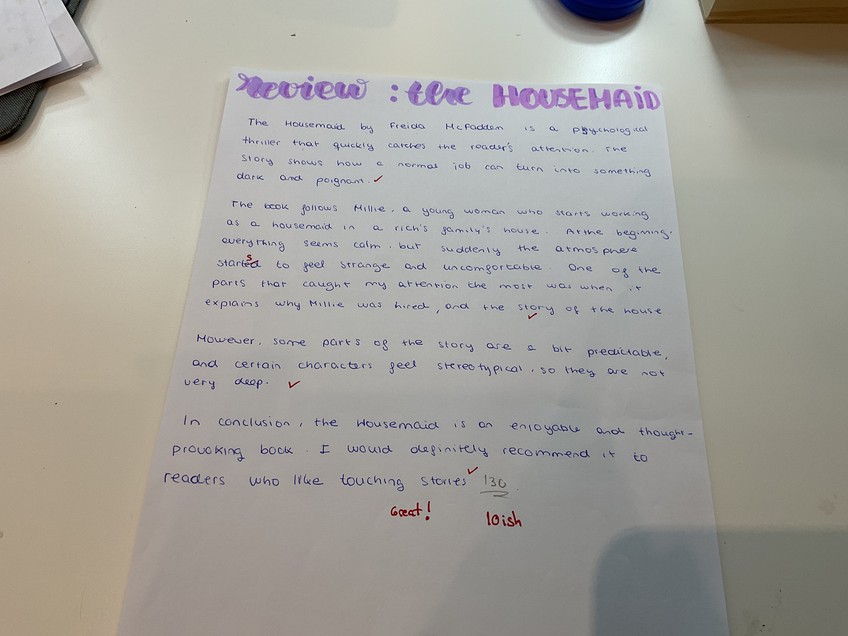 review : the HOUSEMAID
The Housemaid by Freida McFadden is a psychological
thriller that quickly catches the reader's attention. The
story shows how a normal job can turn into something
dark and poignant. ✓
The book follows Millie, a young woman who starts working
as a housemaid in a rich's family's house. At the beginning,
everything seems calm, but suddenly the atmosphere
s
started to feel strange and uncomfortable. One of the
parts that caught my attention the most was when it
explains why Millie was hired, and the story of the house.
✓
However, some parts of the story are a bit predictable,
and certain characters feel stereotypical, so they are not
very deep. ✓
In conclusion, the Housemaid is an enjoyable and thought-
provoking book. I would definitely recommend it to
readers who like touching stories ✓ 130
Great! 10ish